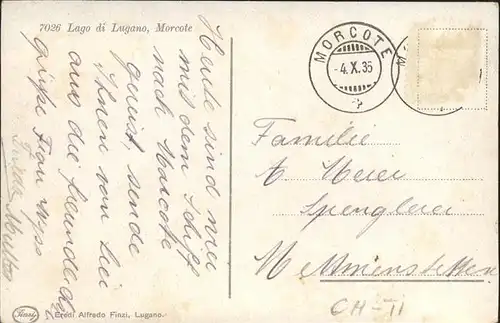 7026 Lago di Lugano, Morcote
Heute sind wir
mit dem Schiff
nach Morcote
gereist, sende
Ihnen von hier
aus die freundlichen
Grüsse Frau Wyss
MORCOTE
-4.X.35
Familie
A Meier
Spenglerei
Mettmenstetten
CH-TI
Finzi
Eredi Alfredo Finzi, Lugano.